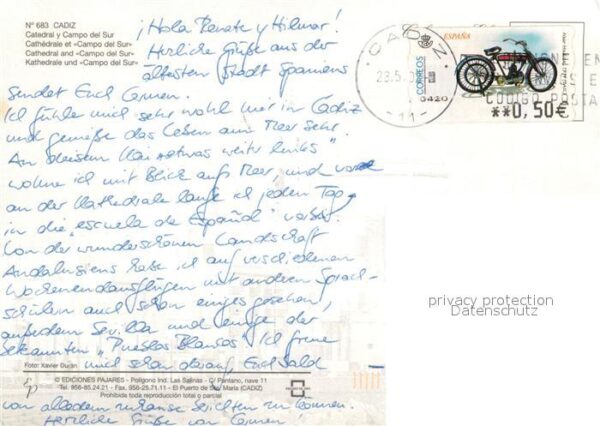 Nº 683 CADIZ
Catedral y Campo del Sur
Cathédrale et «Campo del Sur»
Cathedral and «Campo del Sur»
Kathedrale und «Campo del Sur»
¡Hola Renate y Hilmar!
Herzliche Grüße aus der
ältesten Stadt Spaniens
sendet Euch Carmen.
Ich fühle mich sehr wohl hier in Cadiz
und genieße das Leben am Meer sehr.
An diesem etwas weiter links"
wohne ich mit Blick aufs Meer, und
an der Kathedrale lange ich jeden Tag
in die "escuela de Español" vorbei.
Von der wunderschönen Landschaft
Andalusiens habe ich auf verschiedenen
Wochenendausflügen mit anderen Sprach-
schülern auch schon einiges gesehen,
außerdem Sevilla und einige der
bekannten "Pueblos Blancos". Ich freue
mich schon darauf, Euch bald
von alledem zuhause berichten zu können.
Herzliche Grüße von Carmen!
Foto: Xavier Durán
© EDICIONES PAJARES - Polígono Ind. Las Salinas - C/ Pantano, nave 11
Tel. 956-85.24.21 - Fax. 956-25.71.11 - El Puerto de Sta. María (CADIZ)
Prohibida toda reproducción total o parcial
CADIZ
23.5.
-11-
ESPAÑA
CORREOS
0420
**0,50€
CODIGO POSTA
privacy protection
Datenschutz